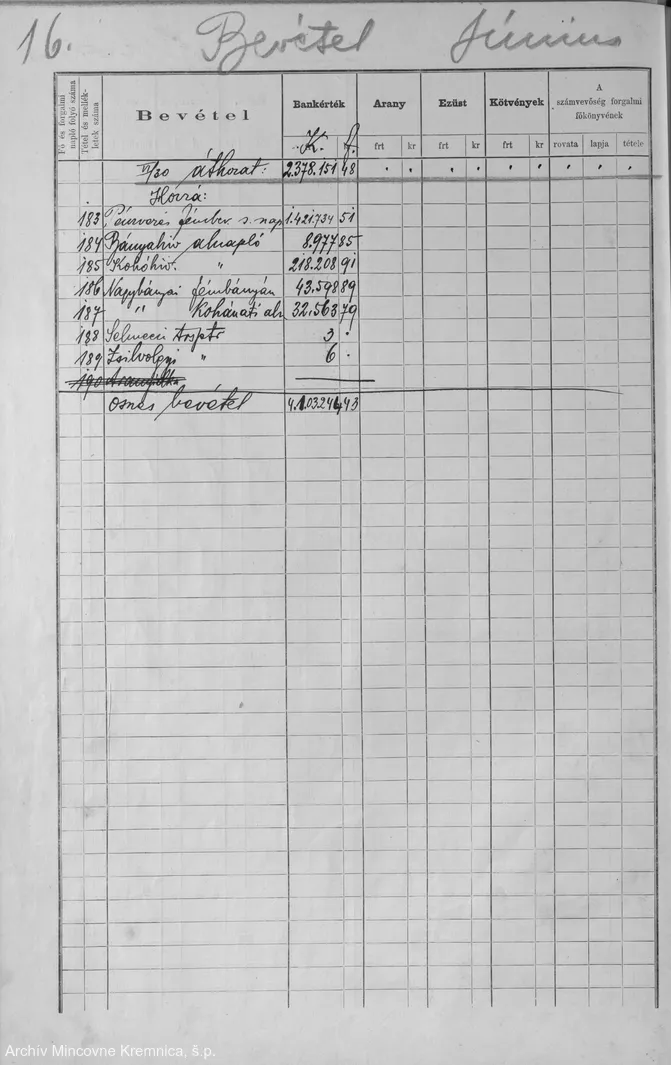 16. Bevétel Június
Fő és forgalmi napló folyó száma
Tétel és mellékletek száma
Bevétel
Bankérték
Arany
Ezüst
Kötvények
A számvevőség forgalmi főkönyvének
K. f.
frt kr frt kr frt kr rovata lapja tétele
VI/30 áthozat: 2.378.151 48
Hozzá:
183 Pénzverés fémbev. s. nap 1.421.734 51
184 Bányahiv alnapló 8.977 85
185 Kohóhiv. " 218.208 91
186 Nagybányai fémbányán 43.598 89
187 " Kohónati aln 32.563 79
188 Selmeczi 3 .
189 Zsilvölgyi " 6 .
190
Összes bevétel 4.103244 43
Archiv Mincovne Kremnica, š.p.